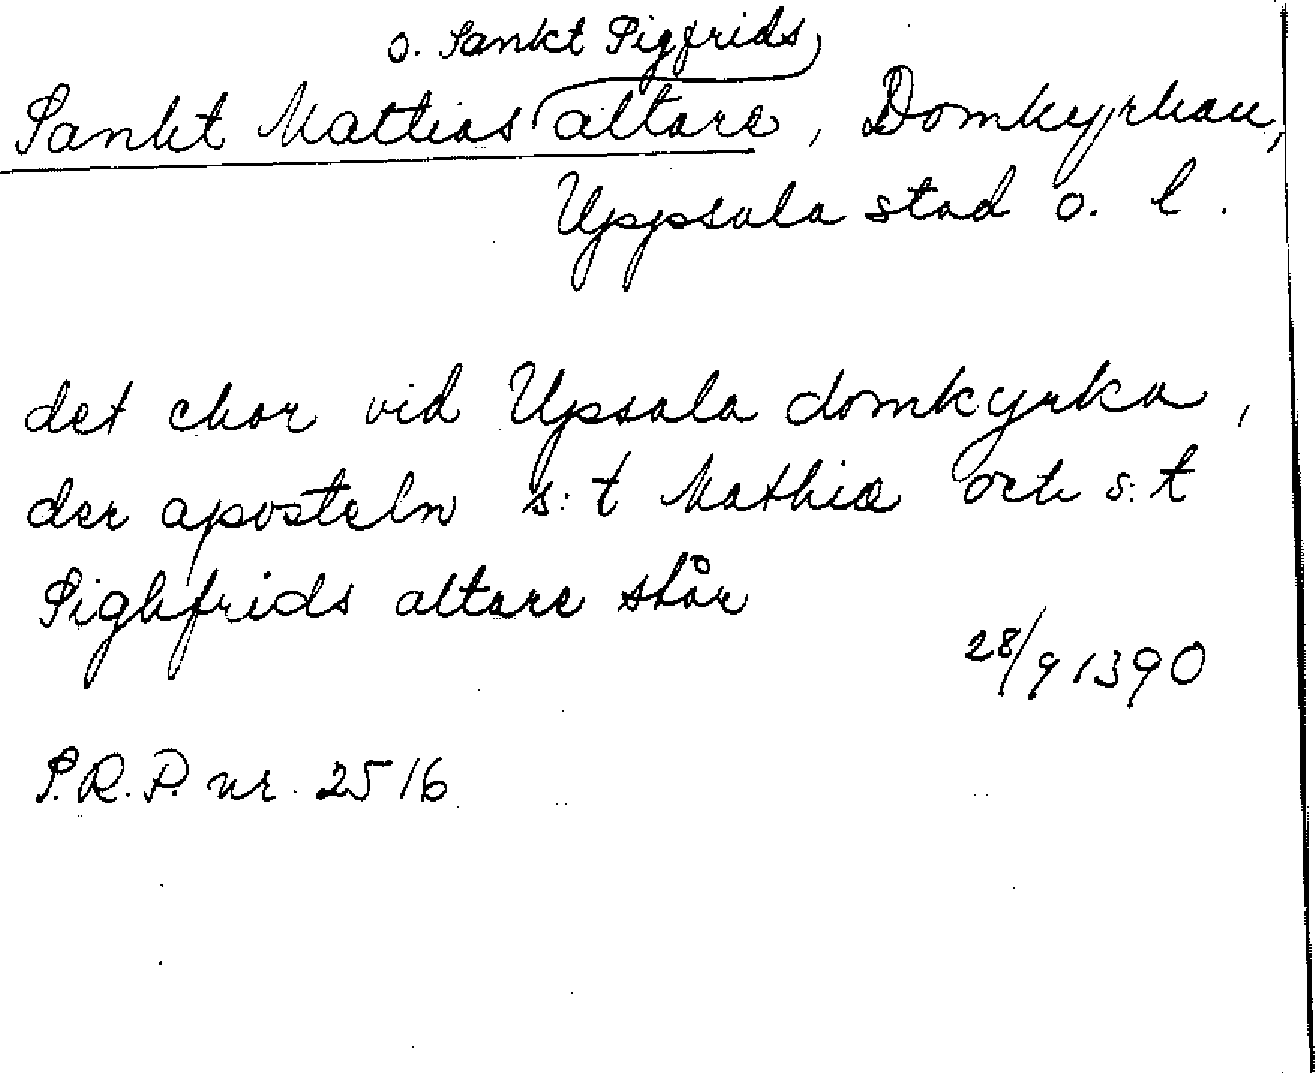 o. Sankt Sigfrids
Sankt Mattias altare, Domkyrkan,
Uppsala stad o. l.
det chor vid Upsala domkyrka,
der aposteln s:t Mathiæ och s:t
Sighfrids altare står
28/9 1390
S.R.P. nr. 2516